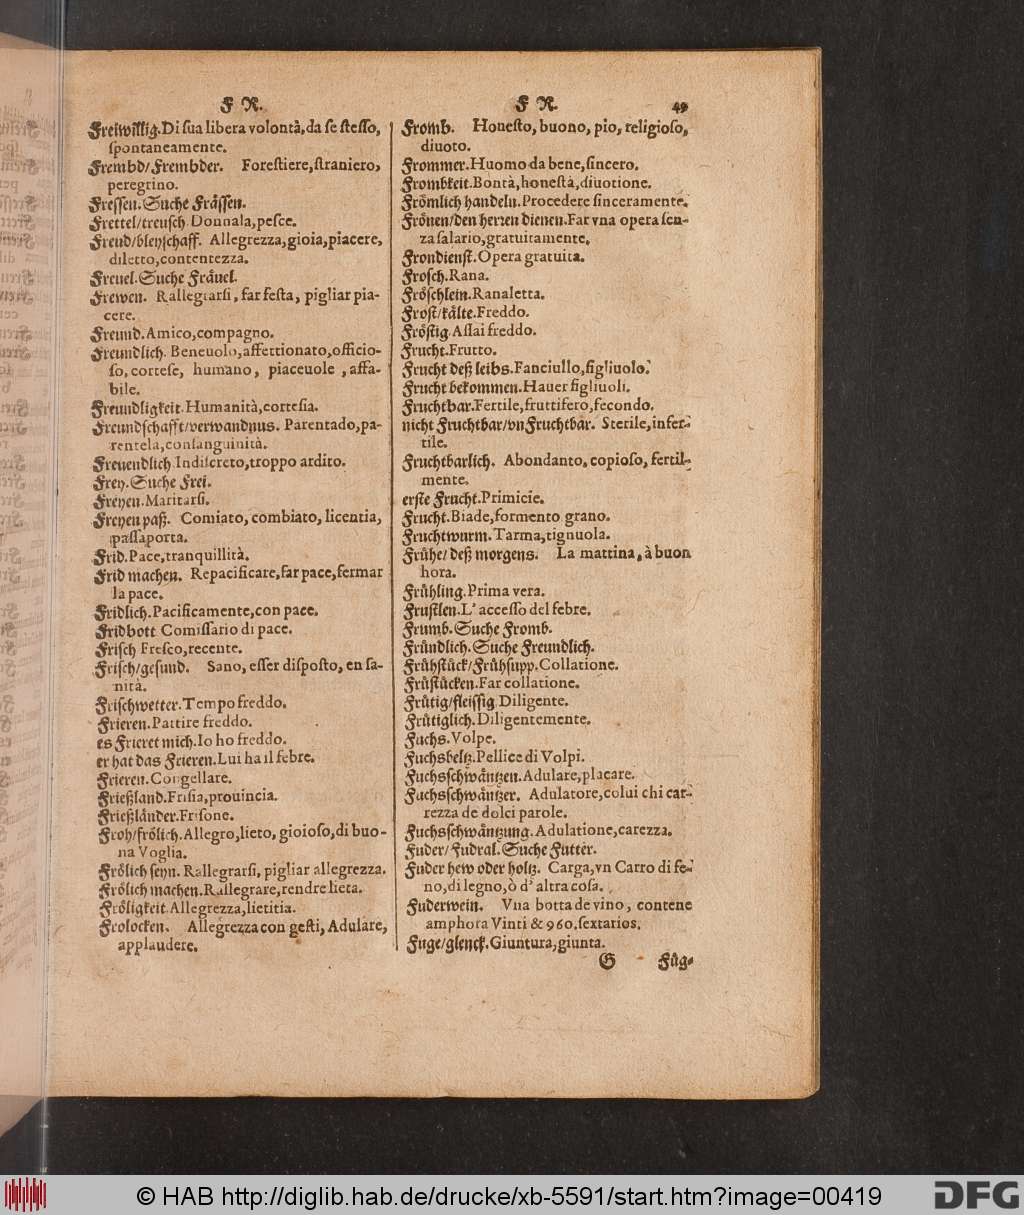 F R.
Freiwillig. Di ſua libera volontà, da ſe ſteſſo,
ſpontaneamente.
Frembd/ Frembder. Foreſtiere, ſtraniero,
peregrino.
Freſſen. Suche Fråſſen.
Frettel/ treuſch. Donnala, peſce.
Freud/ bleyſchafft. Allegrezza, gioia, piacere,
diletto, contentezza.
Freuel. Suche Fråuel.
Frewen. Rallegrarſi, far feſta, pigliar pia-
cere.
Freund. Amico, compagno.
Freundlich. Beneuolo, affettionato, officio-
ſo, corteſe, humano, piaceuole, affa-
bile.
Freundligkeit. Humanità, corteſia.
Freundſchafft/ verwandnus. Parentado, pa-
rentela, conſanguinità.
Freuendlich. Indiſcreto, troppo ardito.
Frey. Suche Frei.
Freyen. Maritarſi.
Freyen paß. Comiato, combiato, licentia,
paſſaporta.
Frid. Pace, tranquillità.
Frid machen. Repacificare, far pace, fermar
la pace.
Fridlich. Pacificamente, con pace.
Fridbott Comiſſario di pace.
Friſch Freſco, recente.
Friſch/ geſund. Sano, eſſer diſpoſto, en ſa-
nità.
Friſchwetter. Tempo freddo.
Frieren. Pattire freddo.
es Frieret mich. Io ho freddo.
er hat das Frieren. Lui ha il febre.
Frieren. Congellare.
Frießland. Friſia, prouincia.
Frießlånder. Friſone.
Froh/ frölich. Allegro, lieto, gioioſo, di buo-
na Voglia.
Frölich ſeyn. Rallegrarſi, pigliar allegrezza.
Frölich machen. Rallegrare, rendre lieta.
Fröligkeit. Allegrezza, lietitia.
Frolocken. Allegrezza con geſti, Adulare,
applaudere.
F R. 49
Fromb. Honeſto, buono, pio, religioſo,
diuoto.
Frommer. Huomo da bene, ſincero.
Frombkeit. Bontà, honeſtà, diuotione.
Frömlich handeln. Procedere ſinceramente.
Frönen/ den herren dienen. Far vna opera ſen-
za ſalario, gratuitamente.
Frondienſt. Opera gratuita.
Froſch. Rana.
Fröſchlein. Ranaletta.
Froſt/ kålte. Freddo.
Fröſtig. Aſſai freddo.
Frucht. Frutto.
Frucht deß leibs. Fanciullo, figliuolo.
Frucht bekommen. Hauer figliuoli.
Fruchtbar. Fertile, fruttifero, fecondo.
nicht Fruchtbar/ vnFruchtbar. Sterile, infer-
tile.
Fruchtbarlich. Abondanto, copioſo, fertil-
mente.
erſte Frucht. Primicie.
Frucht. Biade, formento grano.
Fruchtwurm. Tarma, tignuola.
Frühe/ deß morgens. La mattina, à buon
hora.
Frühling. Prima vera.
Fruſtlen. L' acceſſo del febre.
Frumb. Suche Fromb.
Fründlich. Suche Freundlich.
Frühſtück/ Frühſupp. Collatione.
Früſtücken. Far collatione.
Frütig/ fleiſſig. Diligente.
Frütiglich. Diligentemente.
Fuchs. Volpe.
Fuchsbeltz. Pellice di Volpi.
Fuchsſchwåntzen. Adulare, placare.
Fuchsſchwåntzer. Adulatore, colui chi car-
rezza de dolci parole.
Fuchsſchwåntzung. Adulatione, carezza.
Fuder/ Fudral. Suche Futter.
Fuder hew oder holtz. Carga, vn Carro di fe-
no, di legno, ò d' altra coſa.
Fuderwein. Vna botta de vino, contene
amphora Vinti & 960. ſextarios.
Fuge/ glenck. Giuntura, giunta.
G Füg-
© HAB http://diglib.hab.de/drucke/xb-5591/start.htm?image=00419
DFG